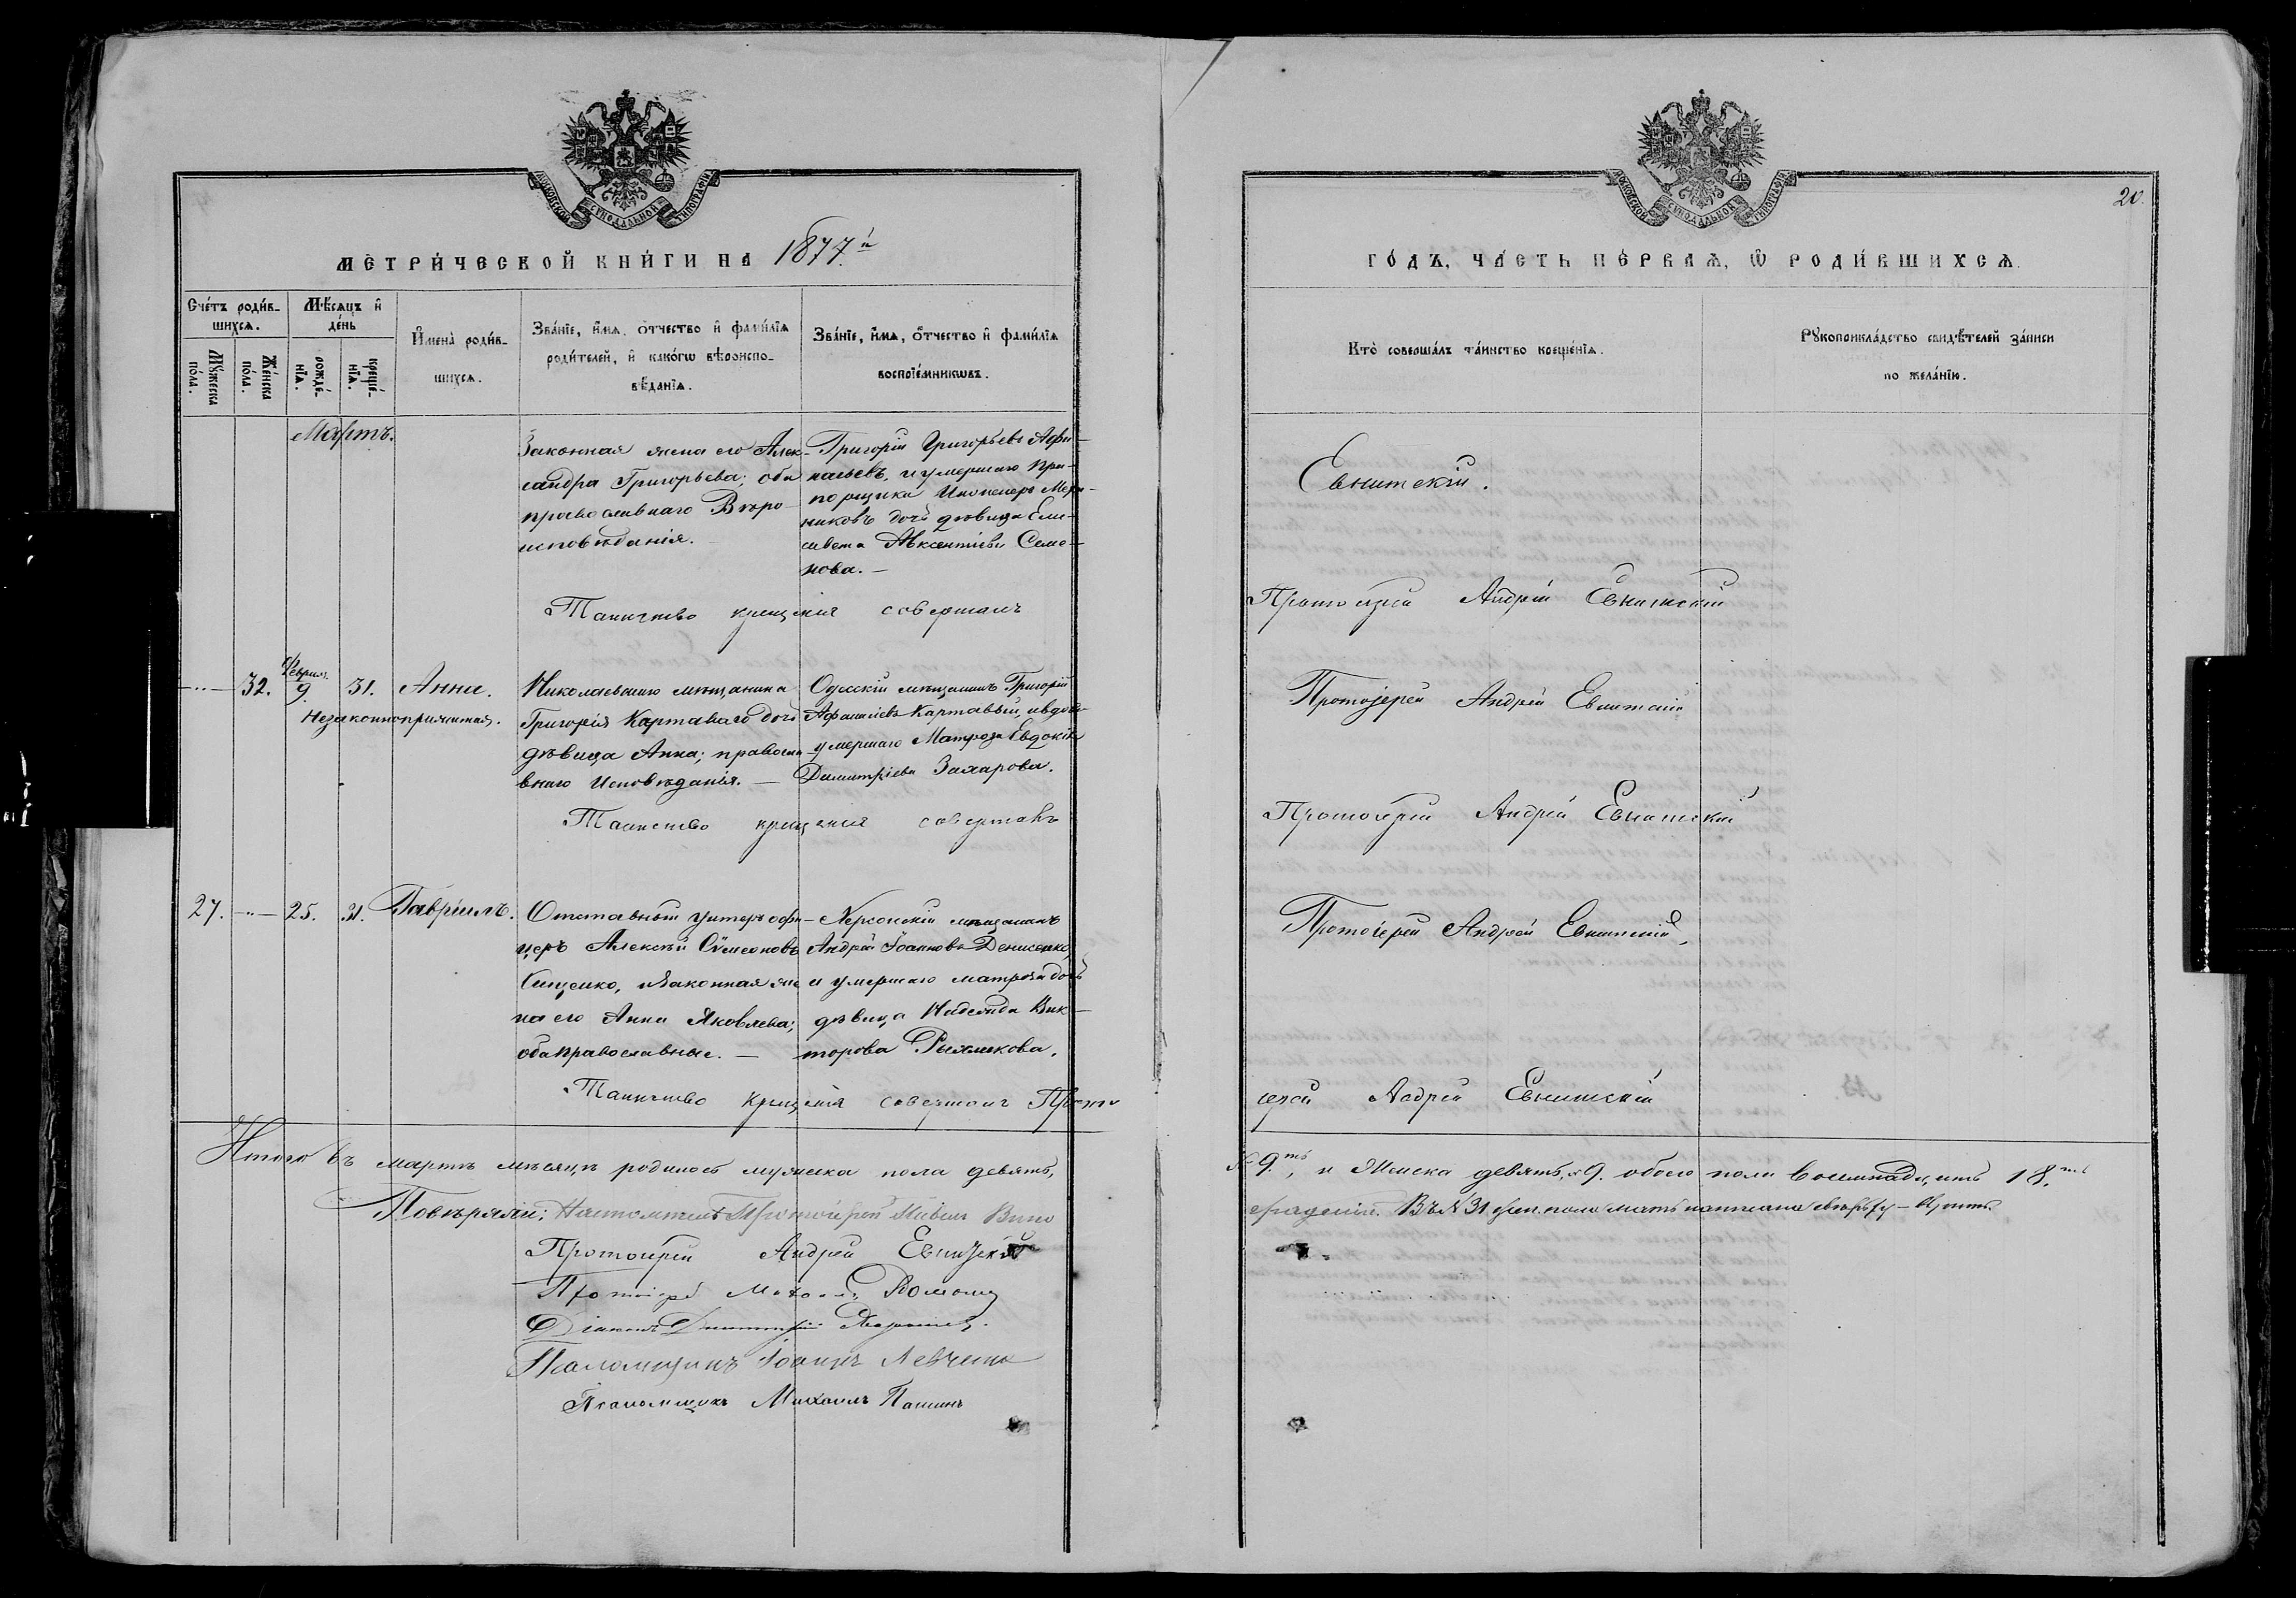 МОСКОВСКОЙ СѴНОДАЛЬНОЙ ТИПОГРАФІИ
МЕТРИ́ЧЕСКОЙ КНИ́ГИ НА 1877.й
Сче́тъ роди́в-
шихсѧ.
Мꙋ́жеска
по́ла.
Же́нска
по́ла.
Мѣ́сѧцъ и
де́нь
рожде́-
нїѧ.
креще́-
нїѧ.
Имена̀ роди́в-
шихсѧ.
Зва́нїе, и́мѧ, ѻ́тчество и фами́лїѧ
роди́телей, и како́гѡ вѣроиспо-
вѣ́данїѧ.
Зва́нїе, и́мѧ, ѻ́тчество и фами́лїѧ
воспрїе́мникѡвъ.
Мартъ.
Законная жена его Алек-
сандра Григорьева; оба
православнаго Вѣро-
исповѣданія.
Григорій Григорьевъ Афа-
насьевъ, и умершаго Пра-
порщика Инженеръ Меха-
никовъ дочь дѣвица Ели-
савета Авксентіева Семе-
нова. —
Таинство крещенія совершалъ
— 32. Феврал. 9. 31. Анна.
Незаконноприжитая.
Николаевскаго мѣщанина
Григорія Картаваго дочь
дѣвица Анна; православ-
внаго Исповѣданія. —
Одесскій мѣщанинъ Григорій
Афанасіевъ Картавый, и вдова
умершаго Матроза Евдокія
Димитріева Захарова.
Таинство крещенія совершалъ
27. — 25. 31. Гавріилъ.
Отставный унтеръ офи-
церъ Алексѣй Сѵмеоновъ
законная же-
на его Анна Яковлева;
оба православные. —
Херсонскій мѣщанинъ
Андрей Іоанновъ Денисенко,
и умершаго матроза дочь
дѣвица Надежда Вик-
торова
Таинство Крещенія совершалъ Прото
Итого въ мартѣ мѣсяцѣ родилось мужеска пола девять,
Повѣряли: Настоятель Протоіерей
Протоіерей Андрей Евнитскій
Протоіерей
Діаконъ Димитрій
Псаломщикъ Іоаннъ Левченко
Псаломщикъ Михаилъ
МОСКОВСКОЙ СѴНОДАЛЬНОЙ ТИПОГРАФІИ
20.
ГО́ДЪ, ЧА́СТЬ ПЕ́РВАѦ, Ѡ РОДИ́ВШИХСѦ.
Кто̀ соверша́лъ та́инство креще́нїѧ.
Рꙋкоприкла́дство свидѣ́телей за́писи
по жела́нїю.
Евнитскій.
Протоіерей Андрей Евнитскій
Протоіерей Андрей Евнитскій
Протоіерей Андрей Евнитскій
Протоіерей Андрей Евнитскій
іерей Андрей Евнитскій
9.ть, и Женска девять, 9. обоего пола восемнадцать 18.ть
Въ № 31 жен. пола мать написана